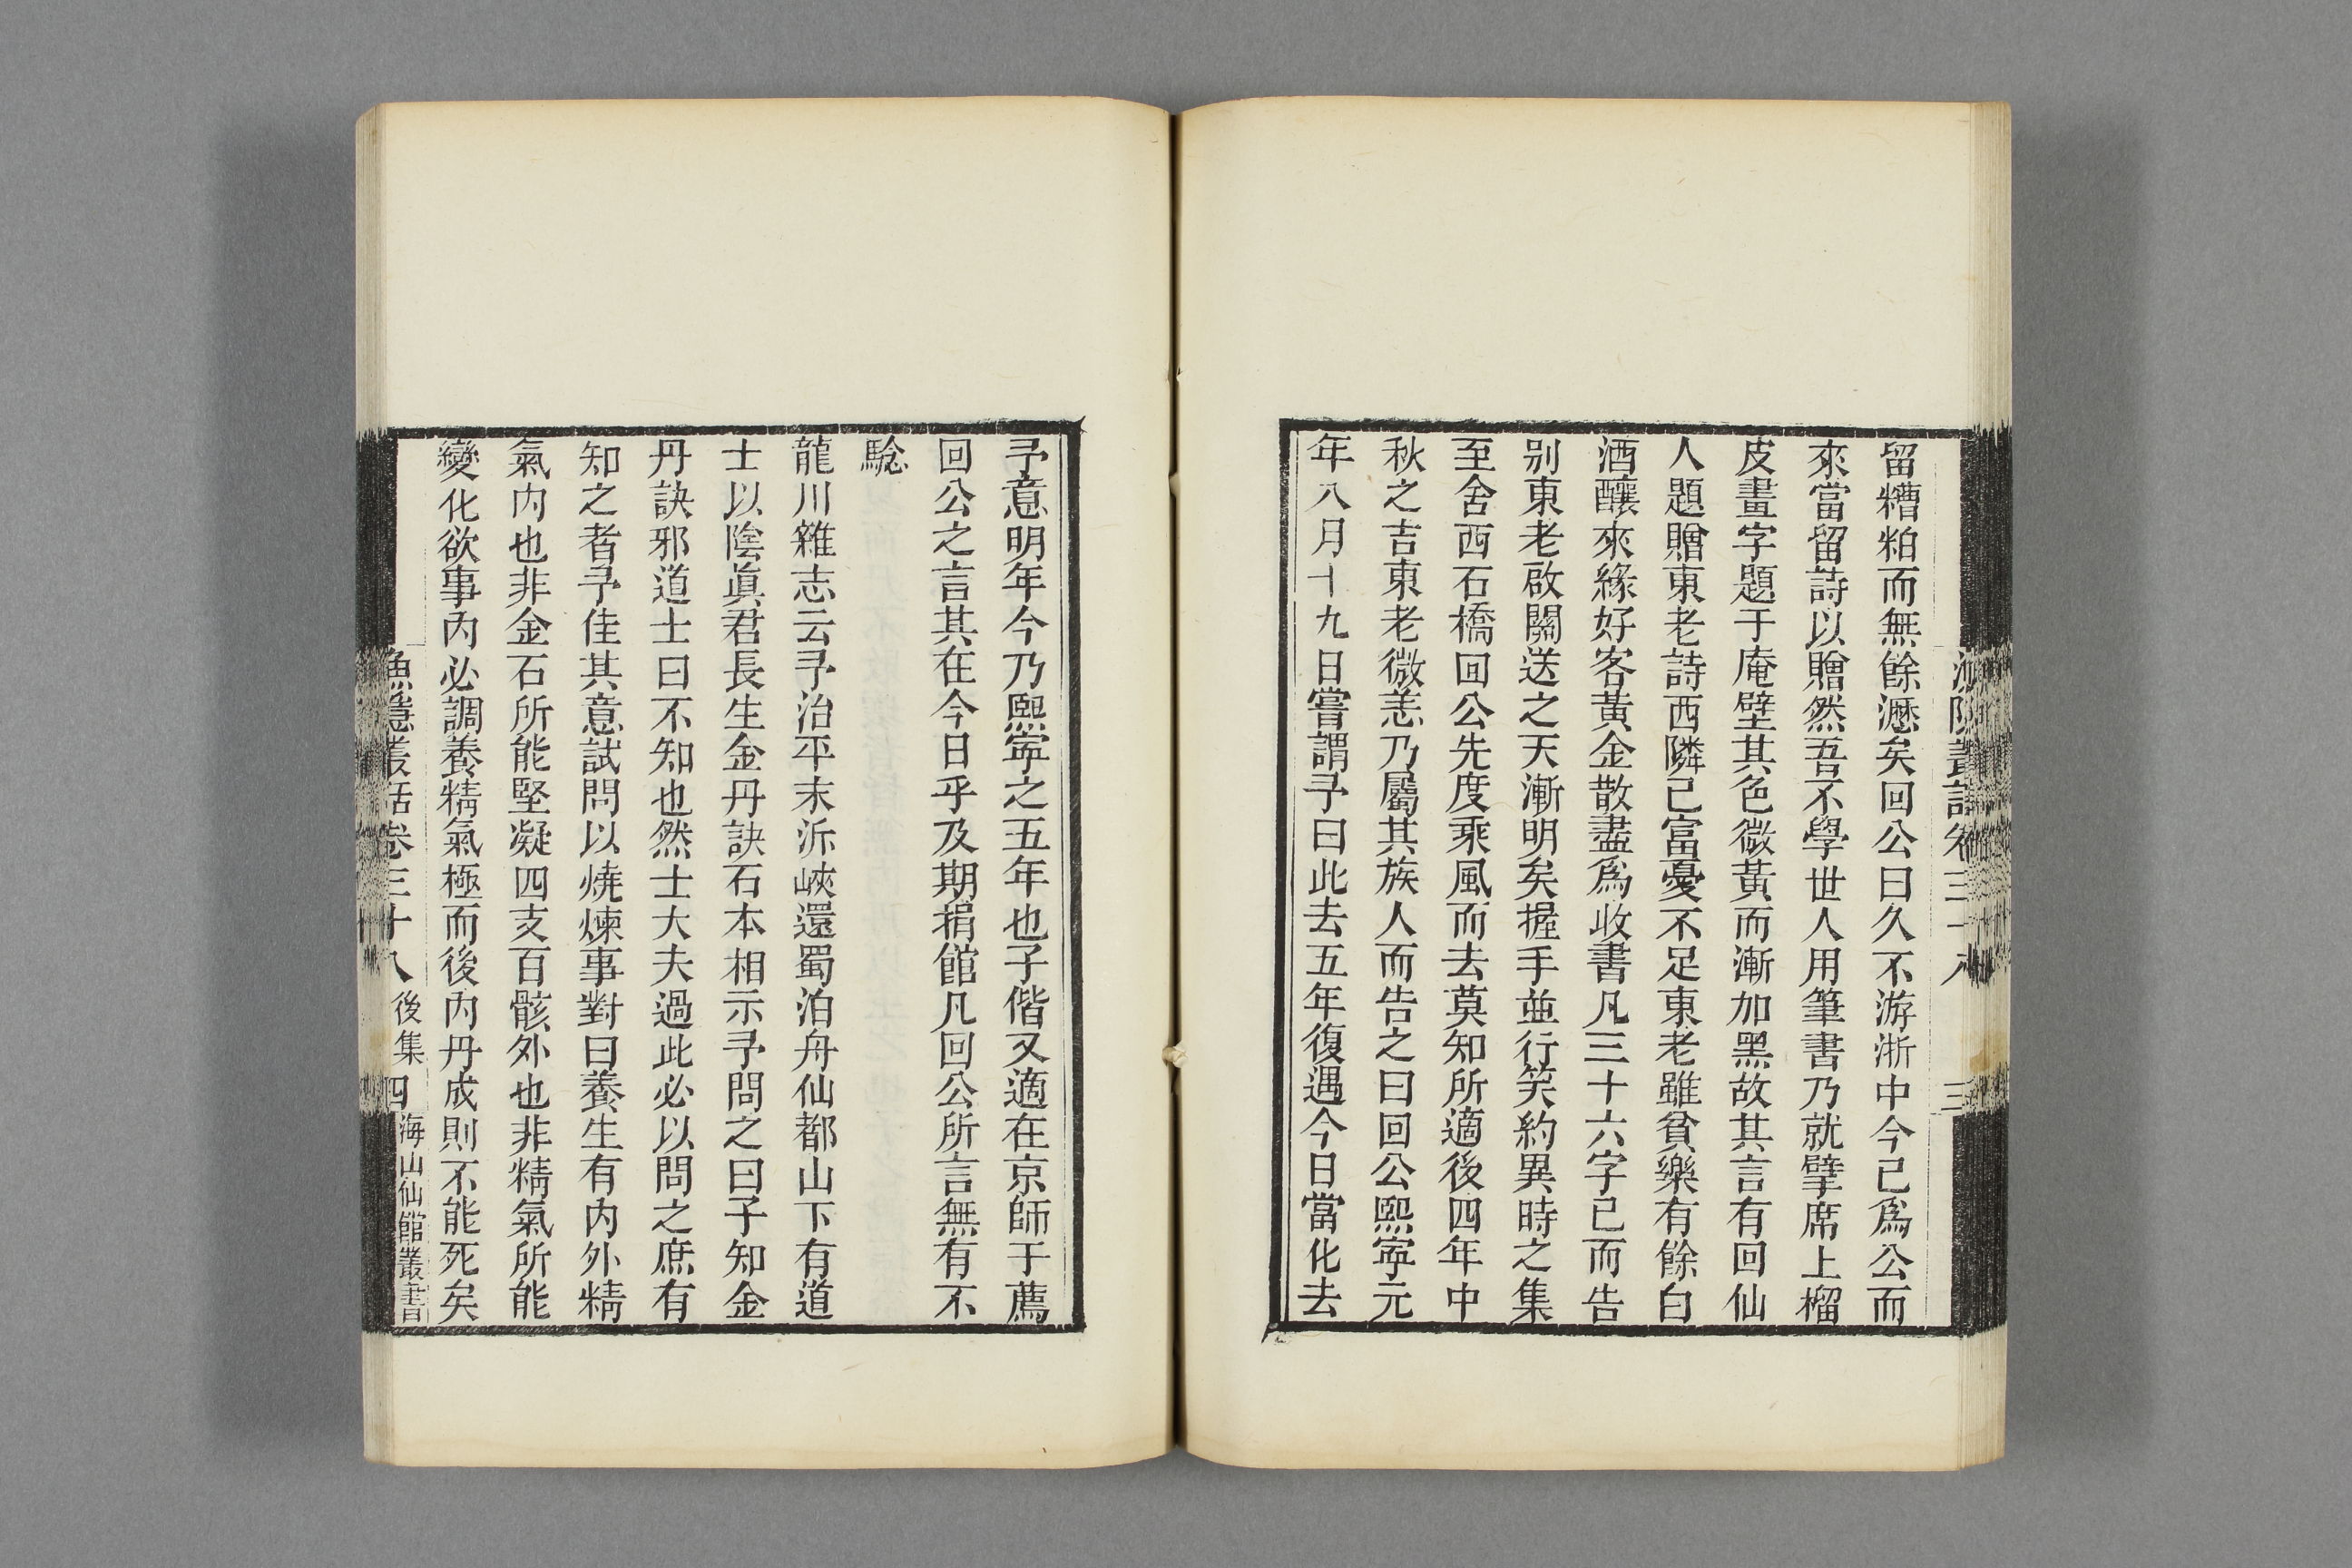 留糟粕而無餘瀝矣回公曰久不游浙中今已爲公而
來當留詩以贈然吾不學世人用筆書乃就擘席上榴
皮畫字題于庵壁其色微黃而漸加黑故其言有回仙
人題贈東老詩西隣已富憂不足東老雖貧樂有餘白
酒釀來緣好客黃金散盡爲收書凡三十六字已而告
別東老啟關送之天漸明矣握手並行笑約異時之集
至舍西石橋回公先度乘風而去莫知所適後四年中
秋之吉東老微恙乃屬其族人而告之曰回公熙寧元
年八月十九日嘗謂予曰此去五年復遇今日當化去
予意明年今乃熙寧之五年也子偕又適在京師干薦
回公之言其在今日乎及期捐館凡回公所言無有不
驗
龍川雜志云予治平末泝峽還蜀泊舟仙都山下有道
士以陰眞君長生金丹訣石本相示予問之曰子知金
丹訣邪道士曰不知也然士大夫過此必以問之庶有
知之者予佳其意試問以燒煉事對曰養生有內外精
氣內也非金石所能堅凝四支百骸外也非精氣所能
變化欲事內必調養精氣極而後內丹成則不能死矣
漁隱叢話卷三十八 後集 四 海山仙館叢書